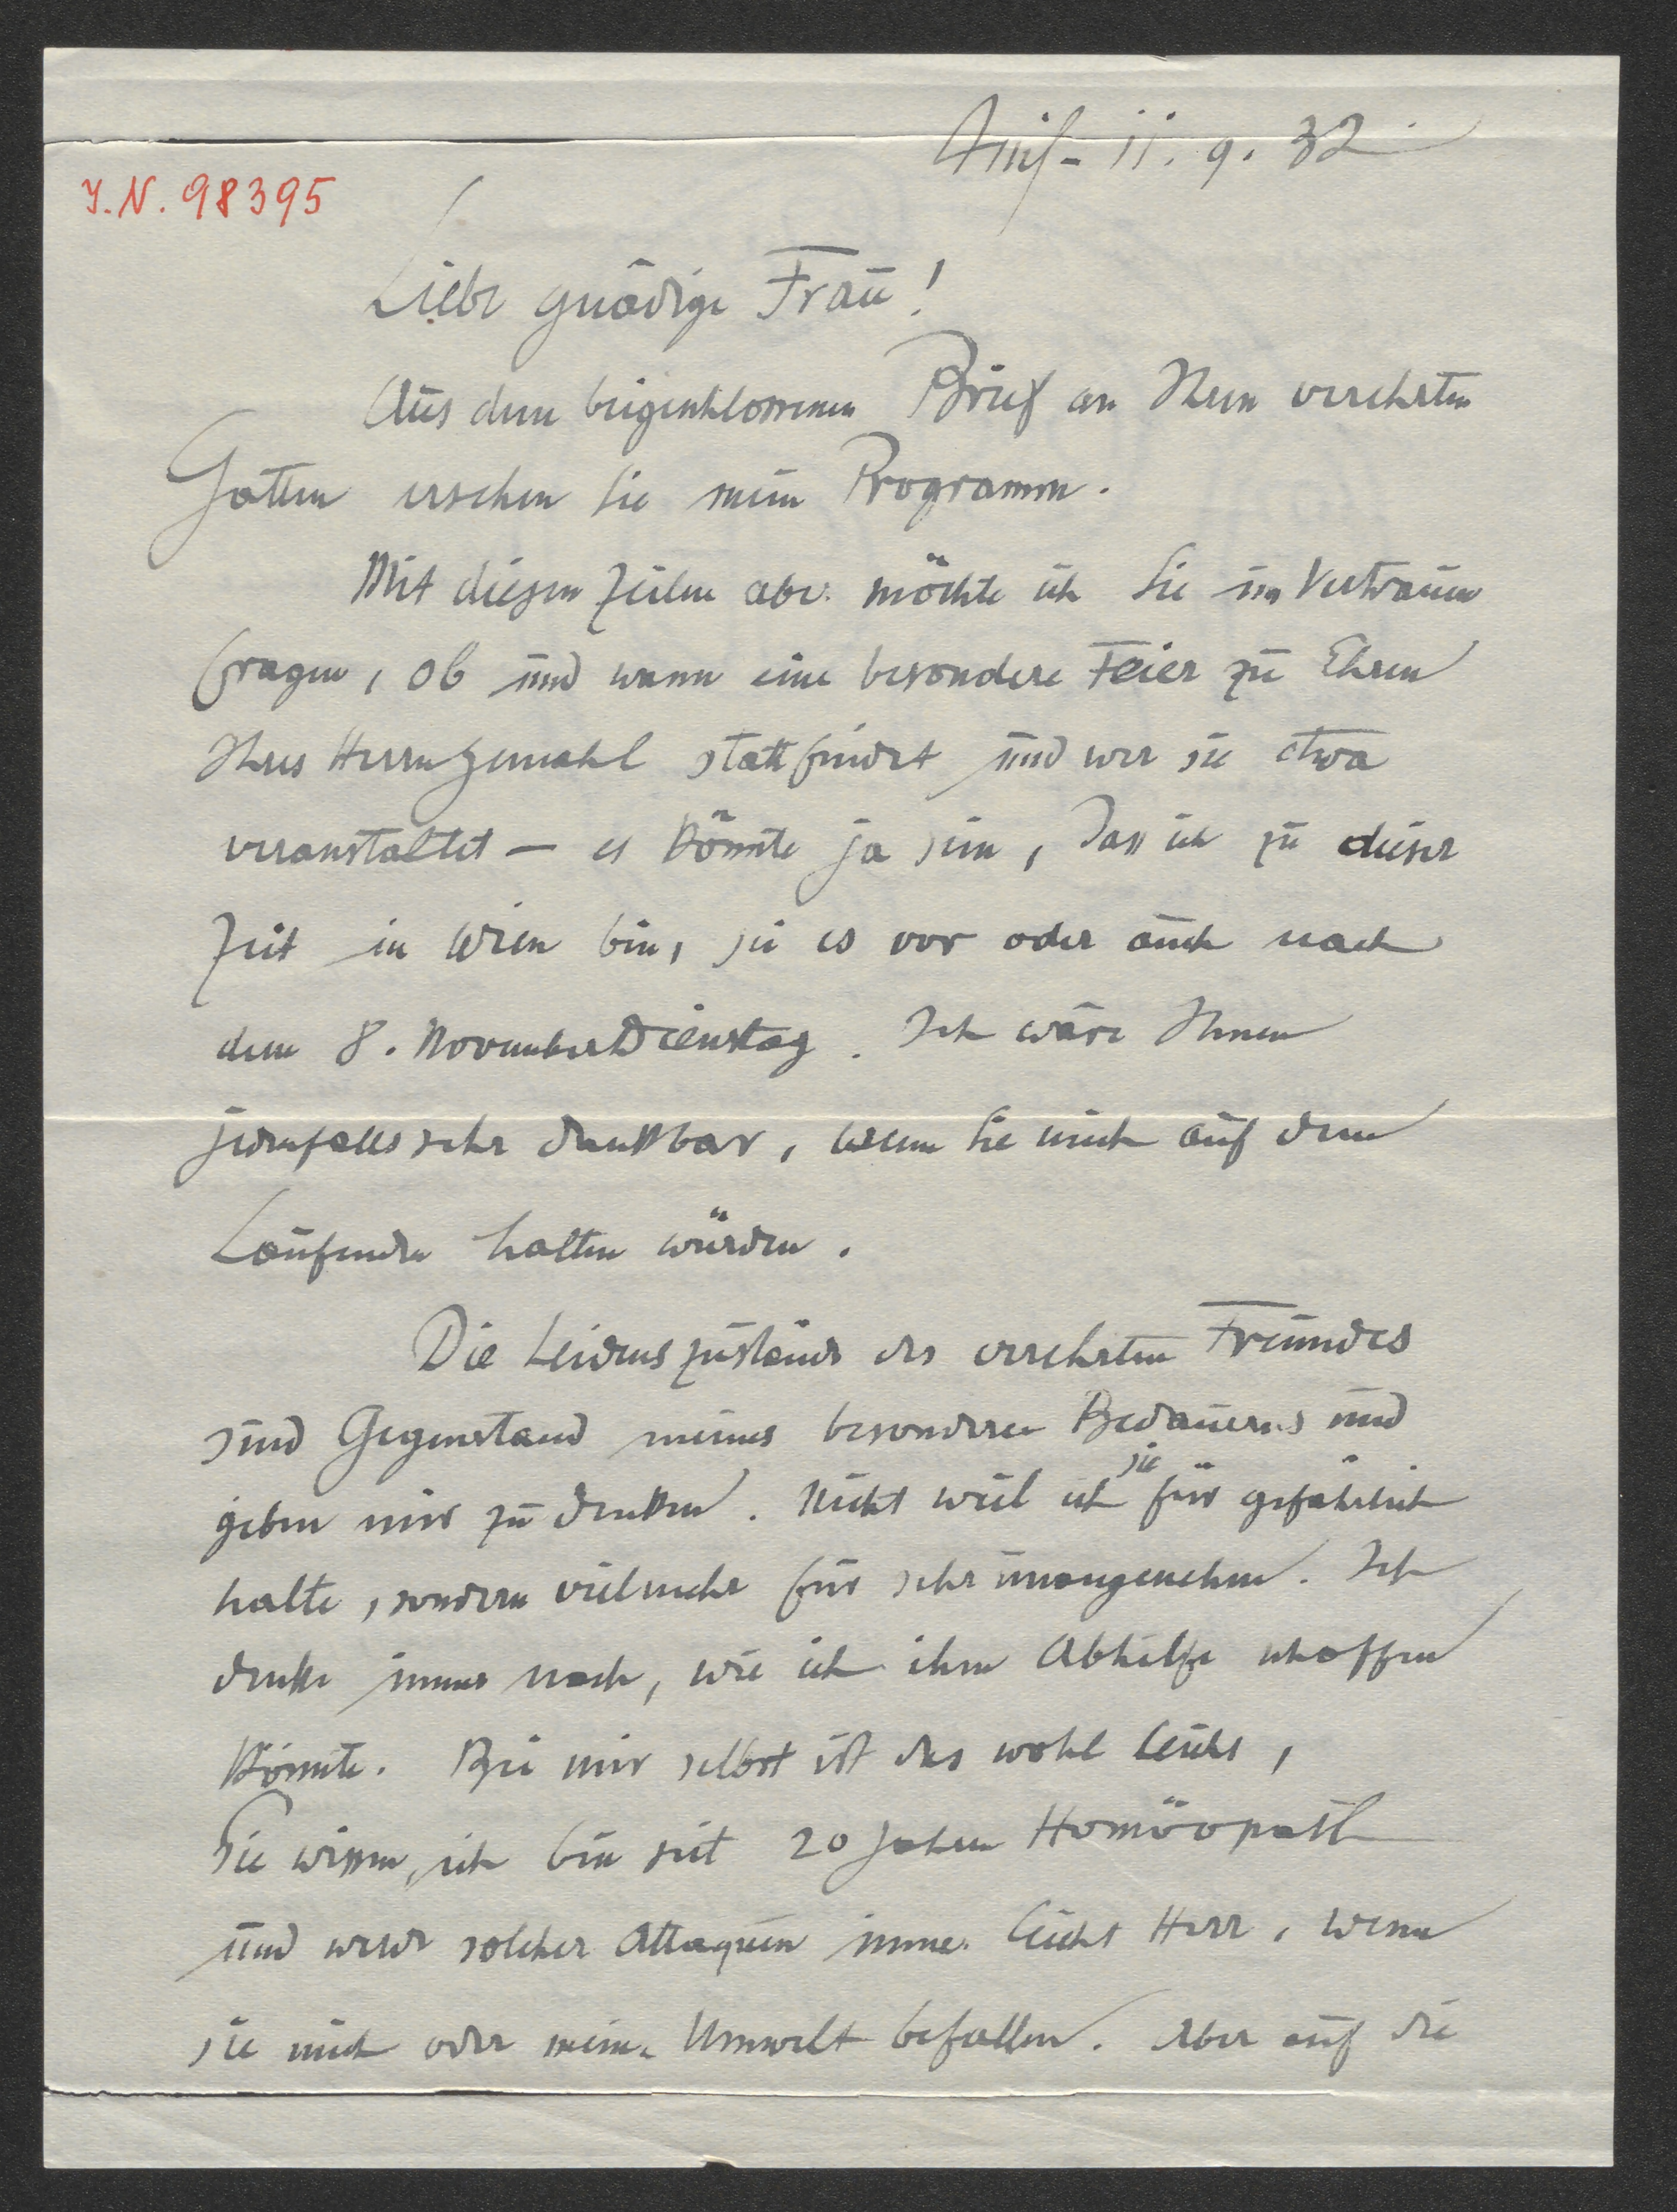 Anif - 11. 9. 32
I.N. 98395
Liebe gnädige Frau!
Aus dem beigeschlossenen Brief an Ihren verehrten
Gatten ersehen Sie mein Programm.
Mit diesen Zeilen aber möchte ich Sie im Vertrauen
fragen, ob und wann eine besondere Feier zu Ehren
Ihres Herrn Gemahl stattfindet und wer sie etwa
veranstaltet — es könnte ja sein, dass ich zu dieser
Zeit in Wien bin, sei es vor oder auch nach
dem 8. November Dienstag. Ich wäre Ihnen
jedenfalls sehr dankbar, wenn Sie mich auf dem
Laufenden halten würden.
Die Leidenszustände des verehrten Freundes
sind Gegenstand meines besonderen Bedauerns und
geben mir zu denken. Nicht weil ich sie für gefährlich
halte, sondern vielmehr für sehr unangenehm. Ich
denke immer nach, wie ich ihm Abhilfe schaffen
könnte. Bei mir selbst ist das wohl leicht,
Sie wissen, ich bin seit 20 Jahren Homöopath
und werde solcher Attaquen immer leicht Herr, wenn
sie mich oder meine Umwelt befallen. Aber auf die